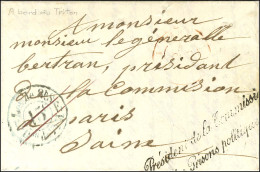 A bord du Triton
A monsieur
monsieur le généralle
bertran, présidant
la Commission
paris
Saine
Président de la Commissi
des Prisons politique